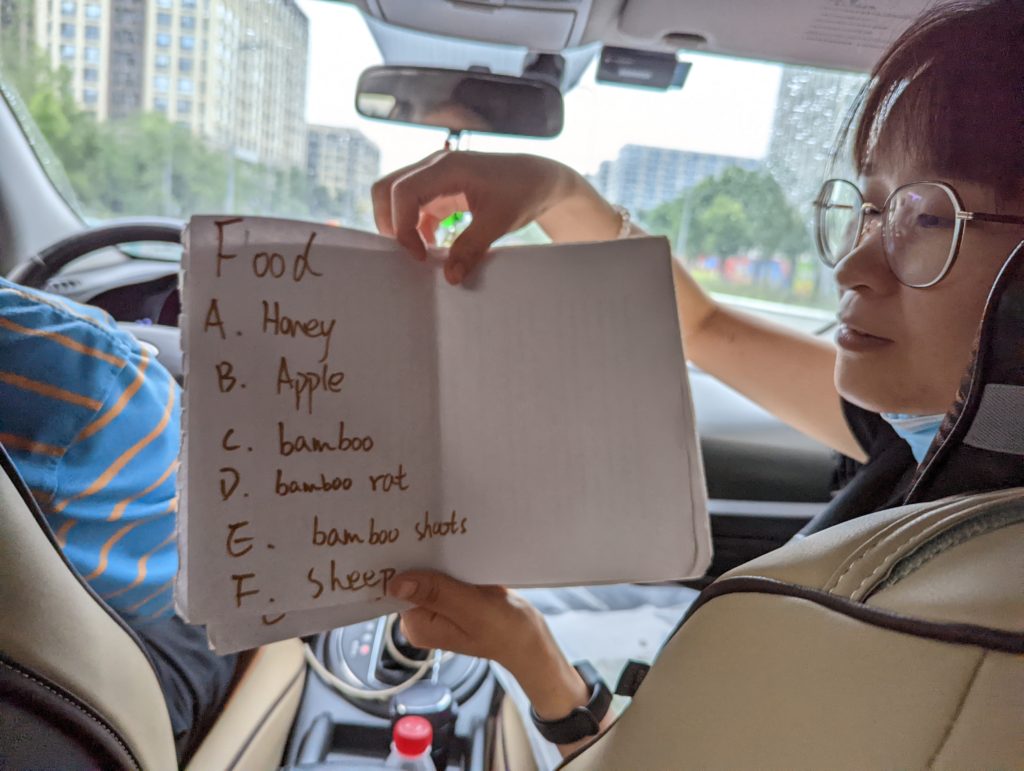 Food
A. Honey
B. Apple
C. bamboo
D. bamboo rat
E. bamboo shoots
F. sheep